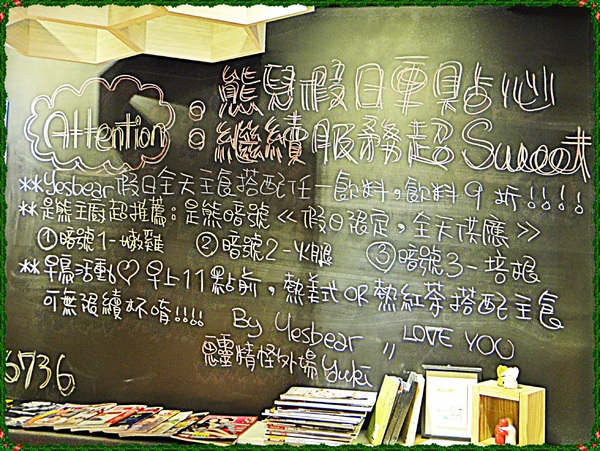 Attention : 熊愛假日更點心
繼續服務超Sweet
**Yesbear假日全天主食搭配任一飲料,飲料9折!!!!
**是熊主廚超推薦:是熊暗號《假日限定,全天供應》
①暗號1-嫩雞 ②暗號2-火腿 ③暗號3-培根
**早鳥活動♡早上11點前,熱美式OR熱紅茶搭配主食
可無限續杯唷!!!!
By Yesbear,, LOVE YOU
惡靈精怪外場Yuki
6736